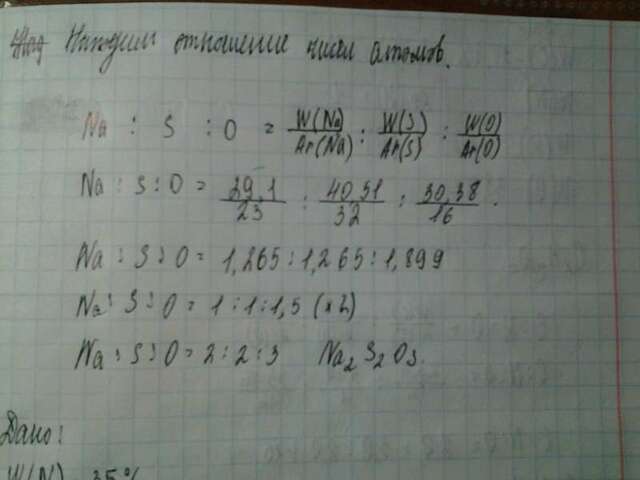 Находим отношение чисел атомов.
Na : S : O = W(Na)/Ar(Na) : W(S)/Ar(S) : W(O)/Ar(O)
Na : S : O = 29,1/23 : 40,51/32 : 30,38/16.
Na : S : O = 1,265 : 1,265 : 1,899
Na : S : O = 1 : 1 : 1,5 (x2)
Na : S : O = 2 : 2 : 3 Na₂S₂O₃.
Дано:
W(N) 35%